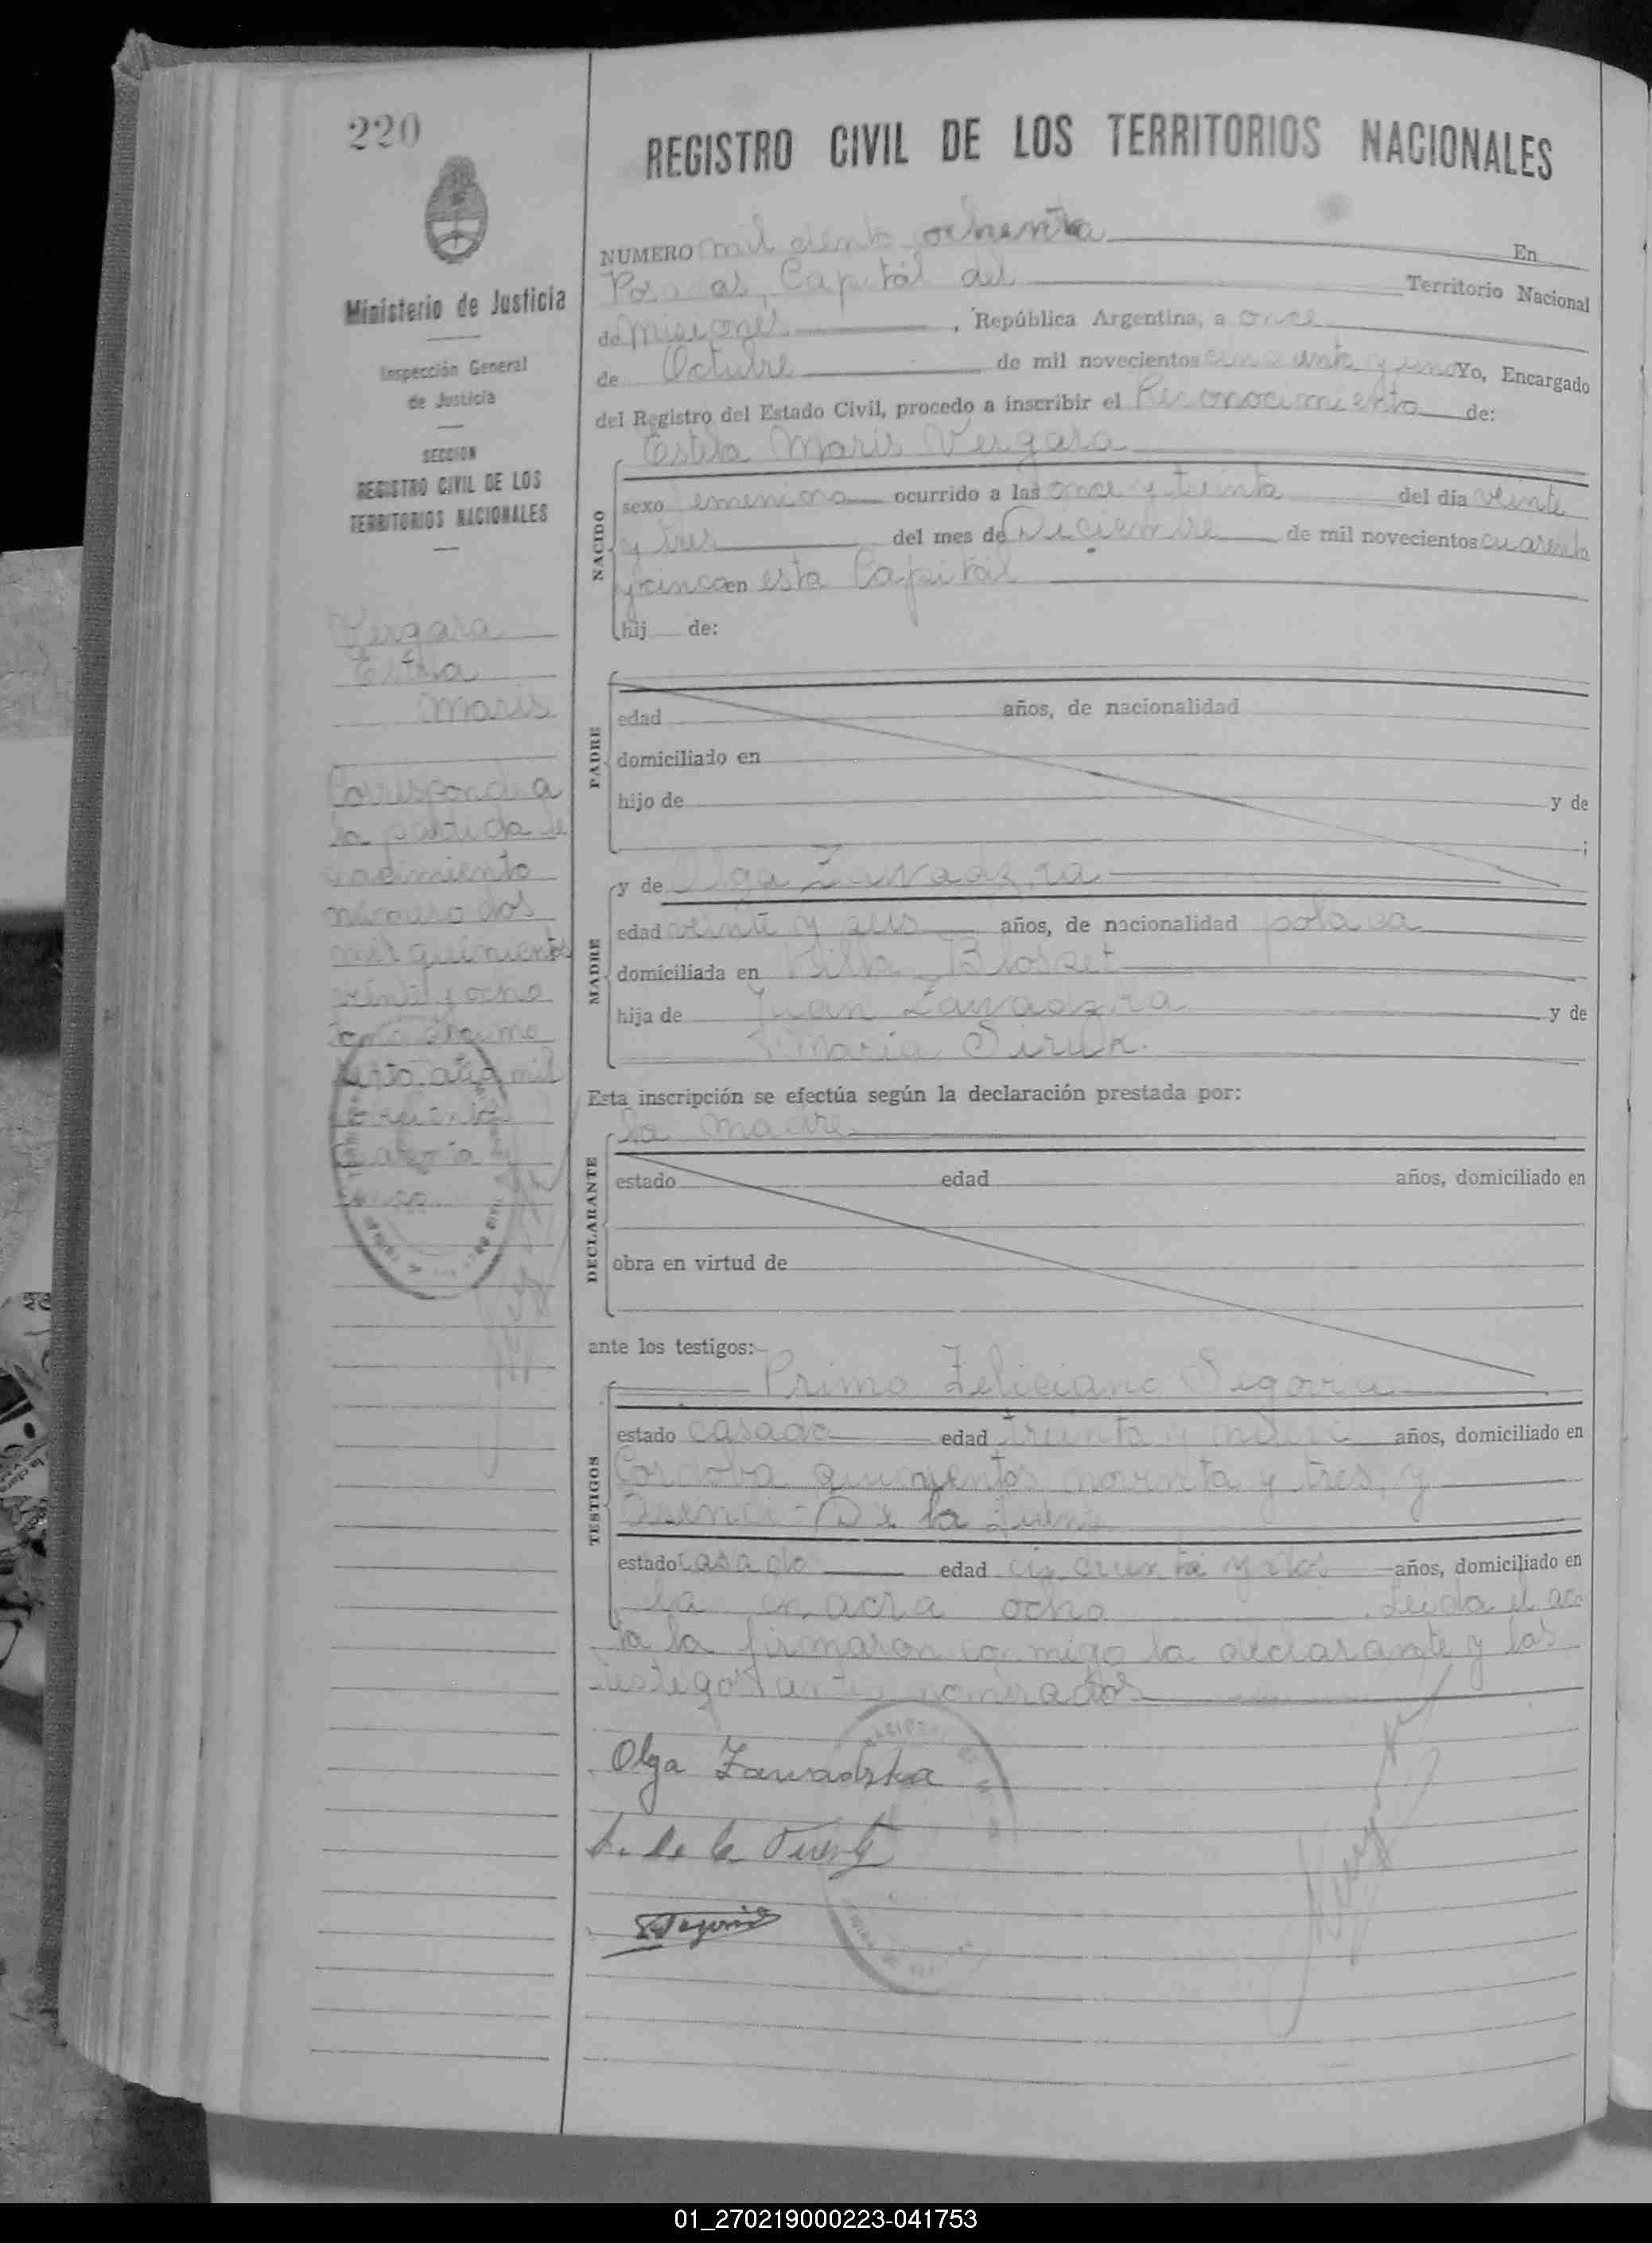 220
Ministerio de Justicia
Inspección General
de Justicia
SECCION
REGISTRO CIVIL DE LOS
TERRITORIOS NACIONALES
Vergara
Estela
Maris
Corresponde a
la partida de
nacimiento
número dos
mil quinientos
veinte y ocho
tomo
año mil
novecientos
cuarenta
cinco
REGISTRO CIVIL DE LOS TERRITORIOS NACIONALES
NUMERO mil ciento ochenta En
Posadas, Capital del Territorio Nacional
de Misiones, República Argentina, a once
de Octubre de mil novecientos cincuenta y uno Yo, Encargado
del Registro del Estado Civil, procedo a inscribir el Reconocimiento de:
Estela Maris Vergara
NACIDO
sexo femenino ocurrido a las once y treinta del día veinte
y tres del mes de Diciembre de mil novecientos cuarenta
y cinco en esta Capital
hij de:
PADRE
edad años, de nacionalidad
domiciliado en
hijo de y de
;
MADRE
y de Olga Zawadzka
edad veinte y seis años, de nacionalidad polaca
domiciliada en Villa Blosset
hija de Juan Zawadzka y de
María Siruk.
Esta inscripción se efectúa según la declaración prestada por:
la madre
DECLARANTE
estado edad años, domiciliado en
obra en virtud de
ante los testigos:
Primo Feliciano Segovia
TESTIGOS
estado casado edad treinta y nueve años, domiciliado en
Córdova quinientos noventa y tres, y
De la Fuente
estado casado edad cincuenta y dos años, domiciliado en
la chacra ocho. Leída el ac-
ta la firmaron conmigo la declarante y los
testigos antes nombrados
Olga Zawadzka
de la Fuente
Segovia
01_270219000223-041753